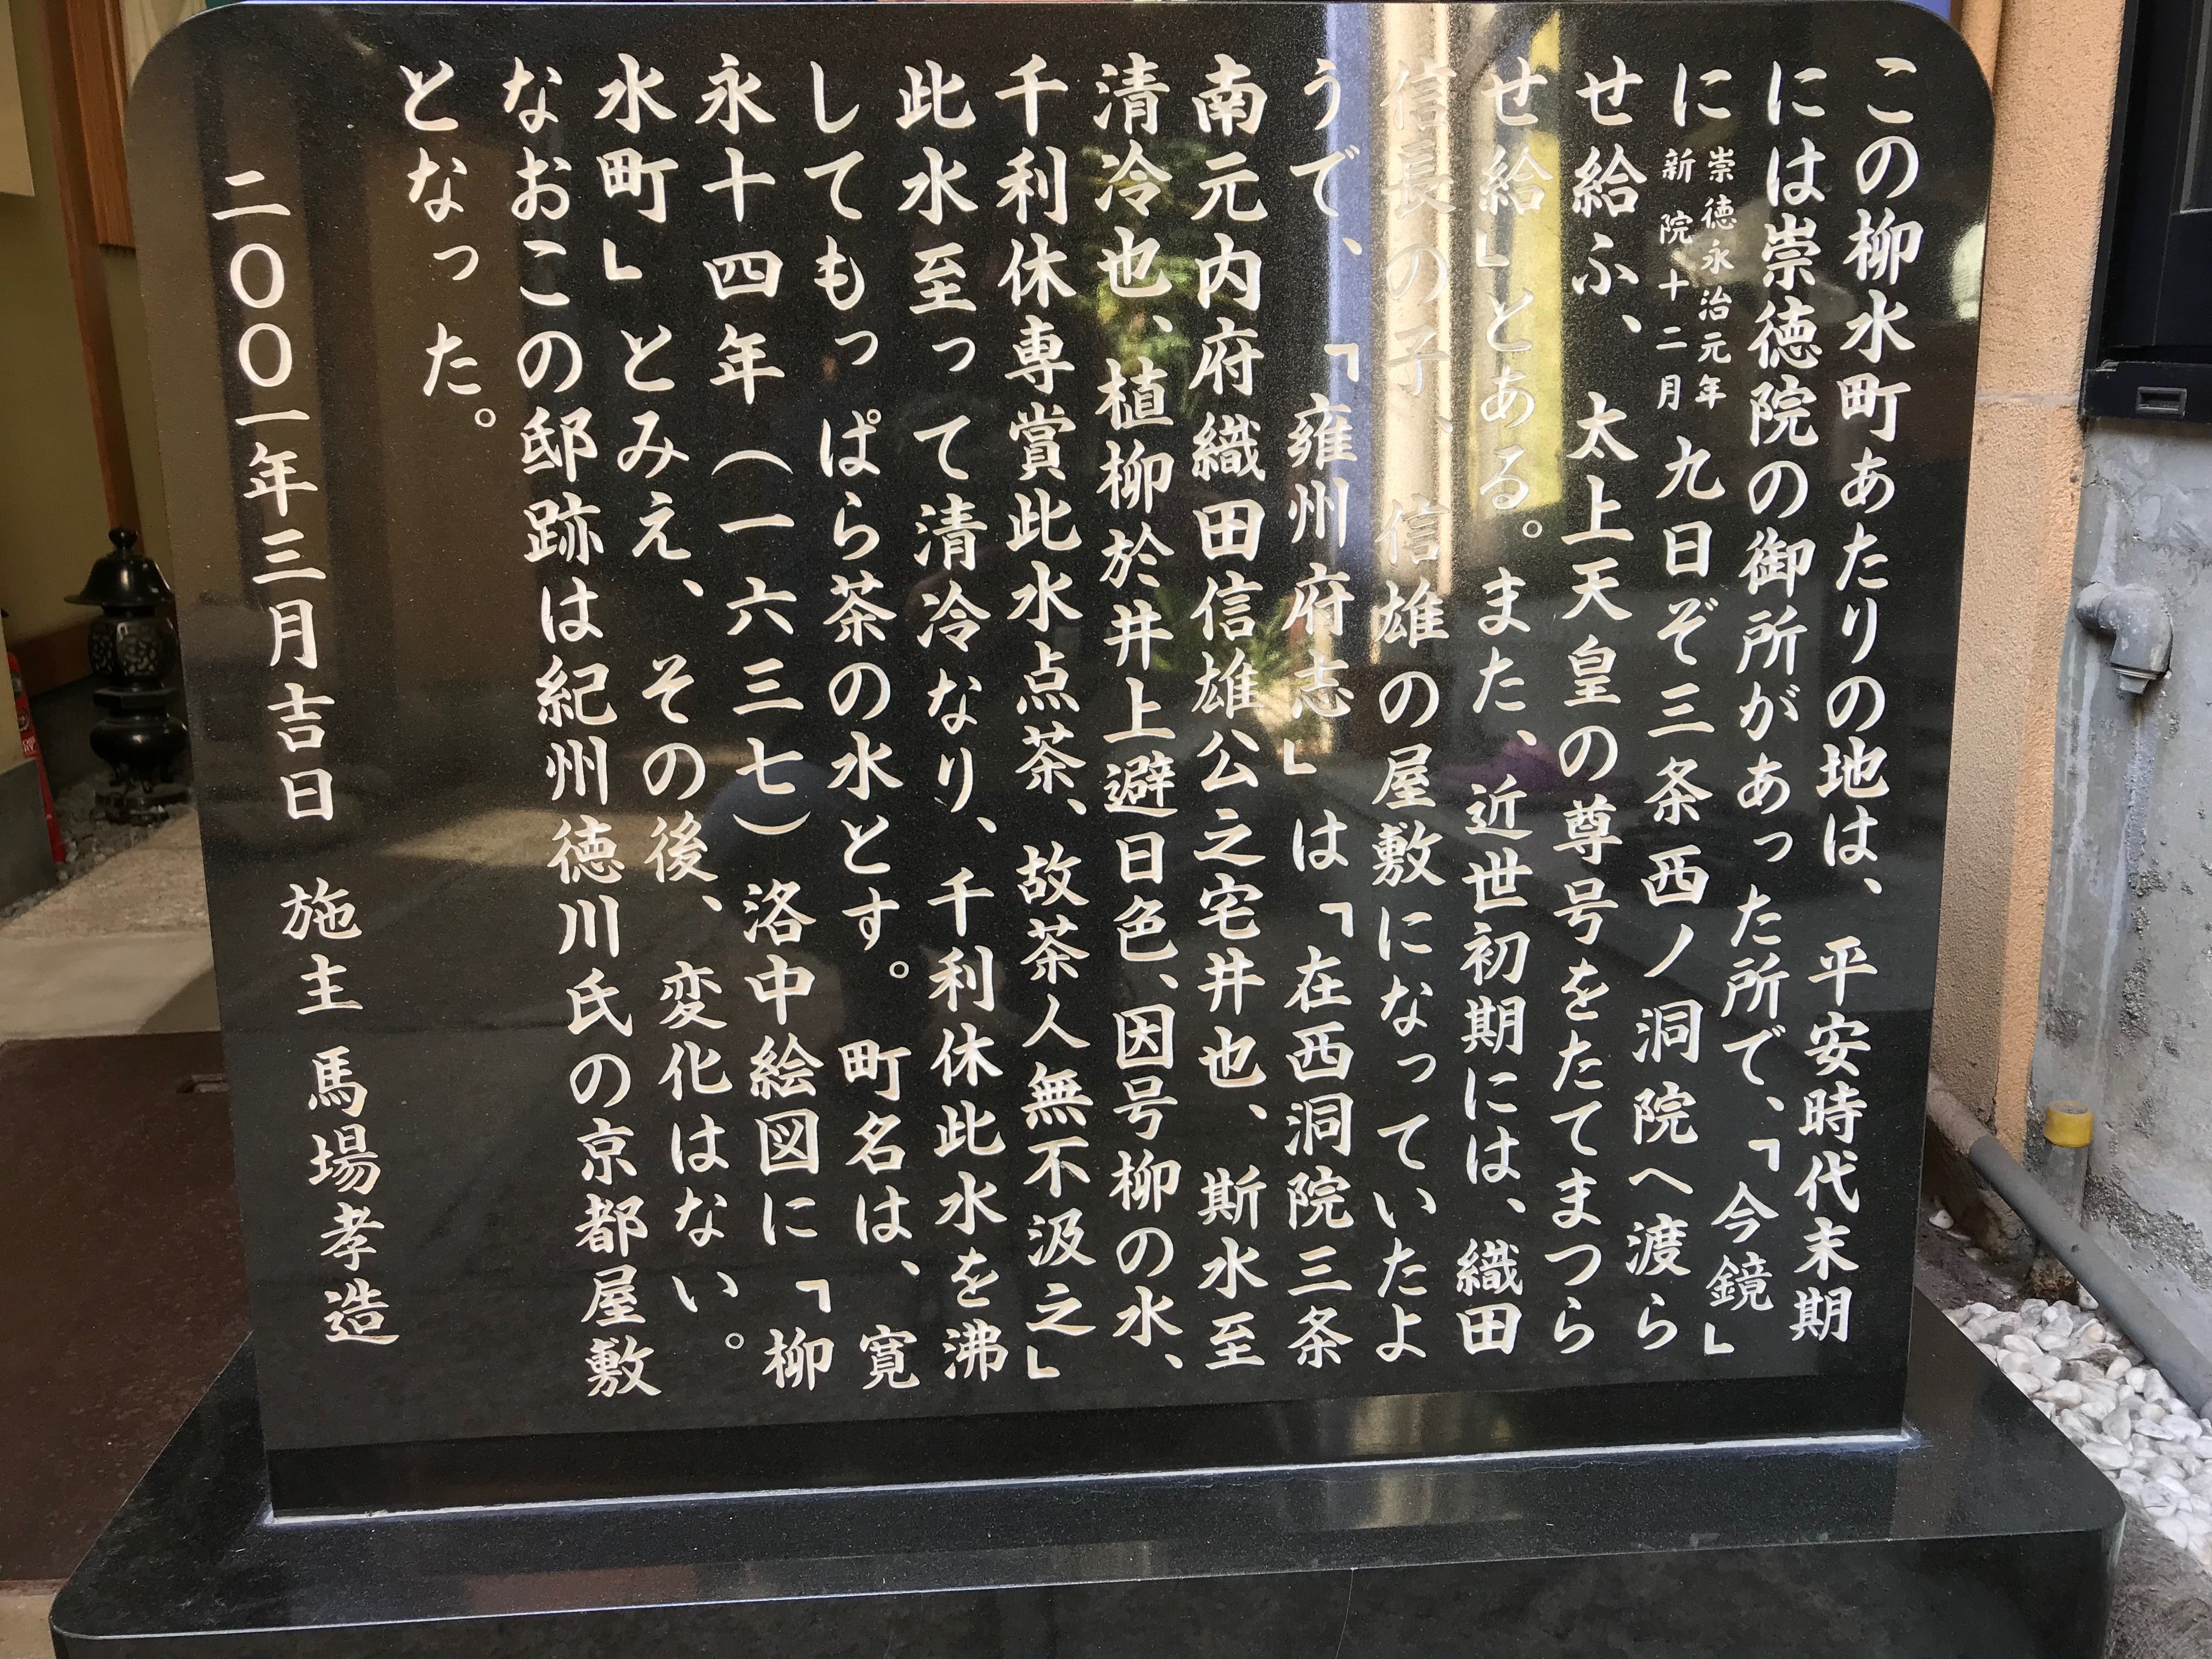 この柳水町あたりの地は、平安時代末期
には崇徳院の御所があった所で、「今鏡」
に
崇徳永治元年
新院、十二月
九日ぞ三条西ノ洞院へ渡ら
せ給ふ、太上天皇の尊号をたてまつら
せ給」とある。また、近世初期には、織田
信長の子、信雄の屋敷になっていたよ
うで、「雍州府志」は「在西洞院三条
南元内府織田信雄公之宅井也、斯水至
清冷也、植柳於井上避日色、因号柳の水、
千利休専賞此水点茶、故茶人無不汲之」
此水至って清冷なり、千利休此水を沸
してもっぱら茶の水とす。町名は、寛
永十四年（一六三七）洛中絵図に「柳
水町」とみえ、その後、変化はない。
なおこの邸跡は紀州徳川氏の京都屋敷
となった。
二〇〇一年三月吉日 施主 馬場孝造